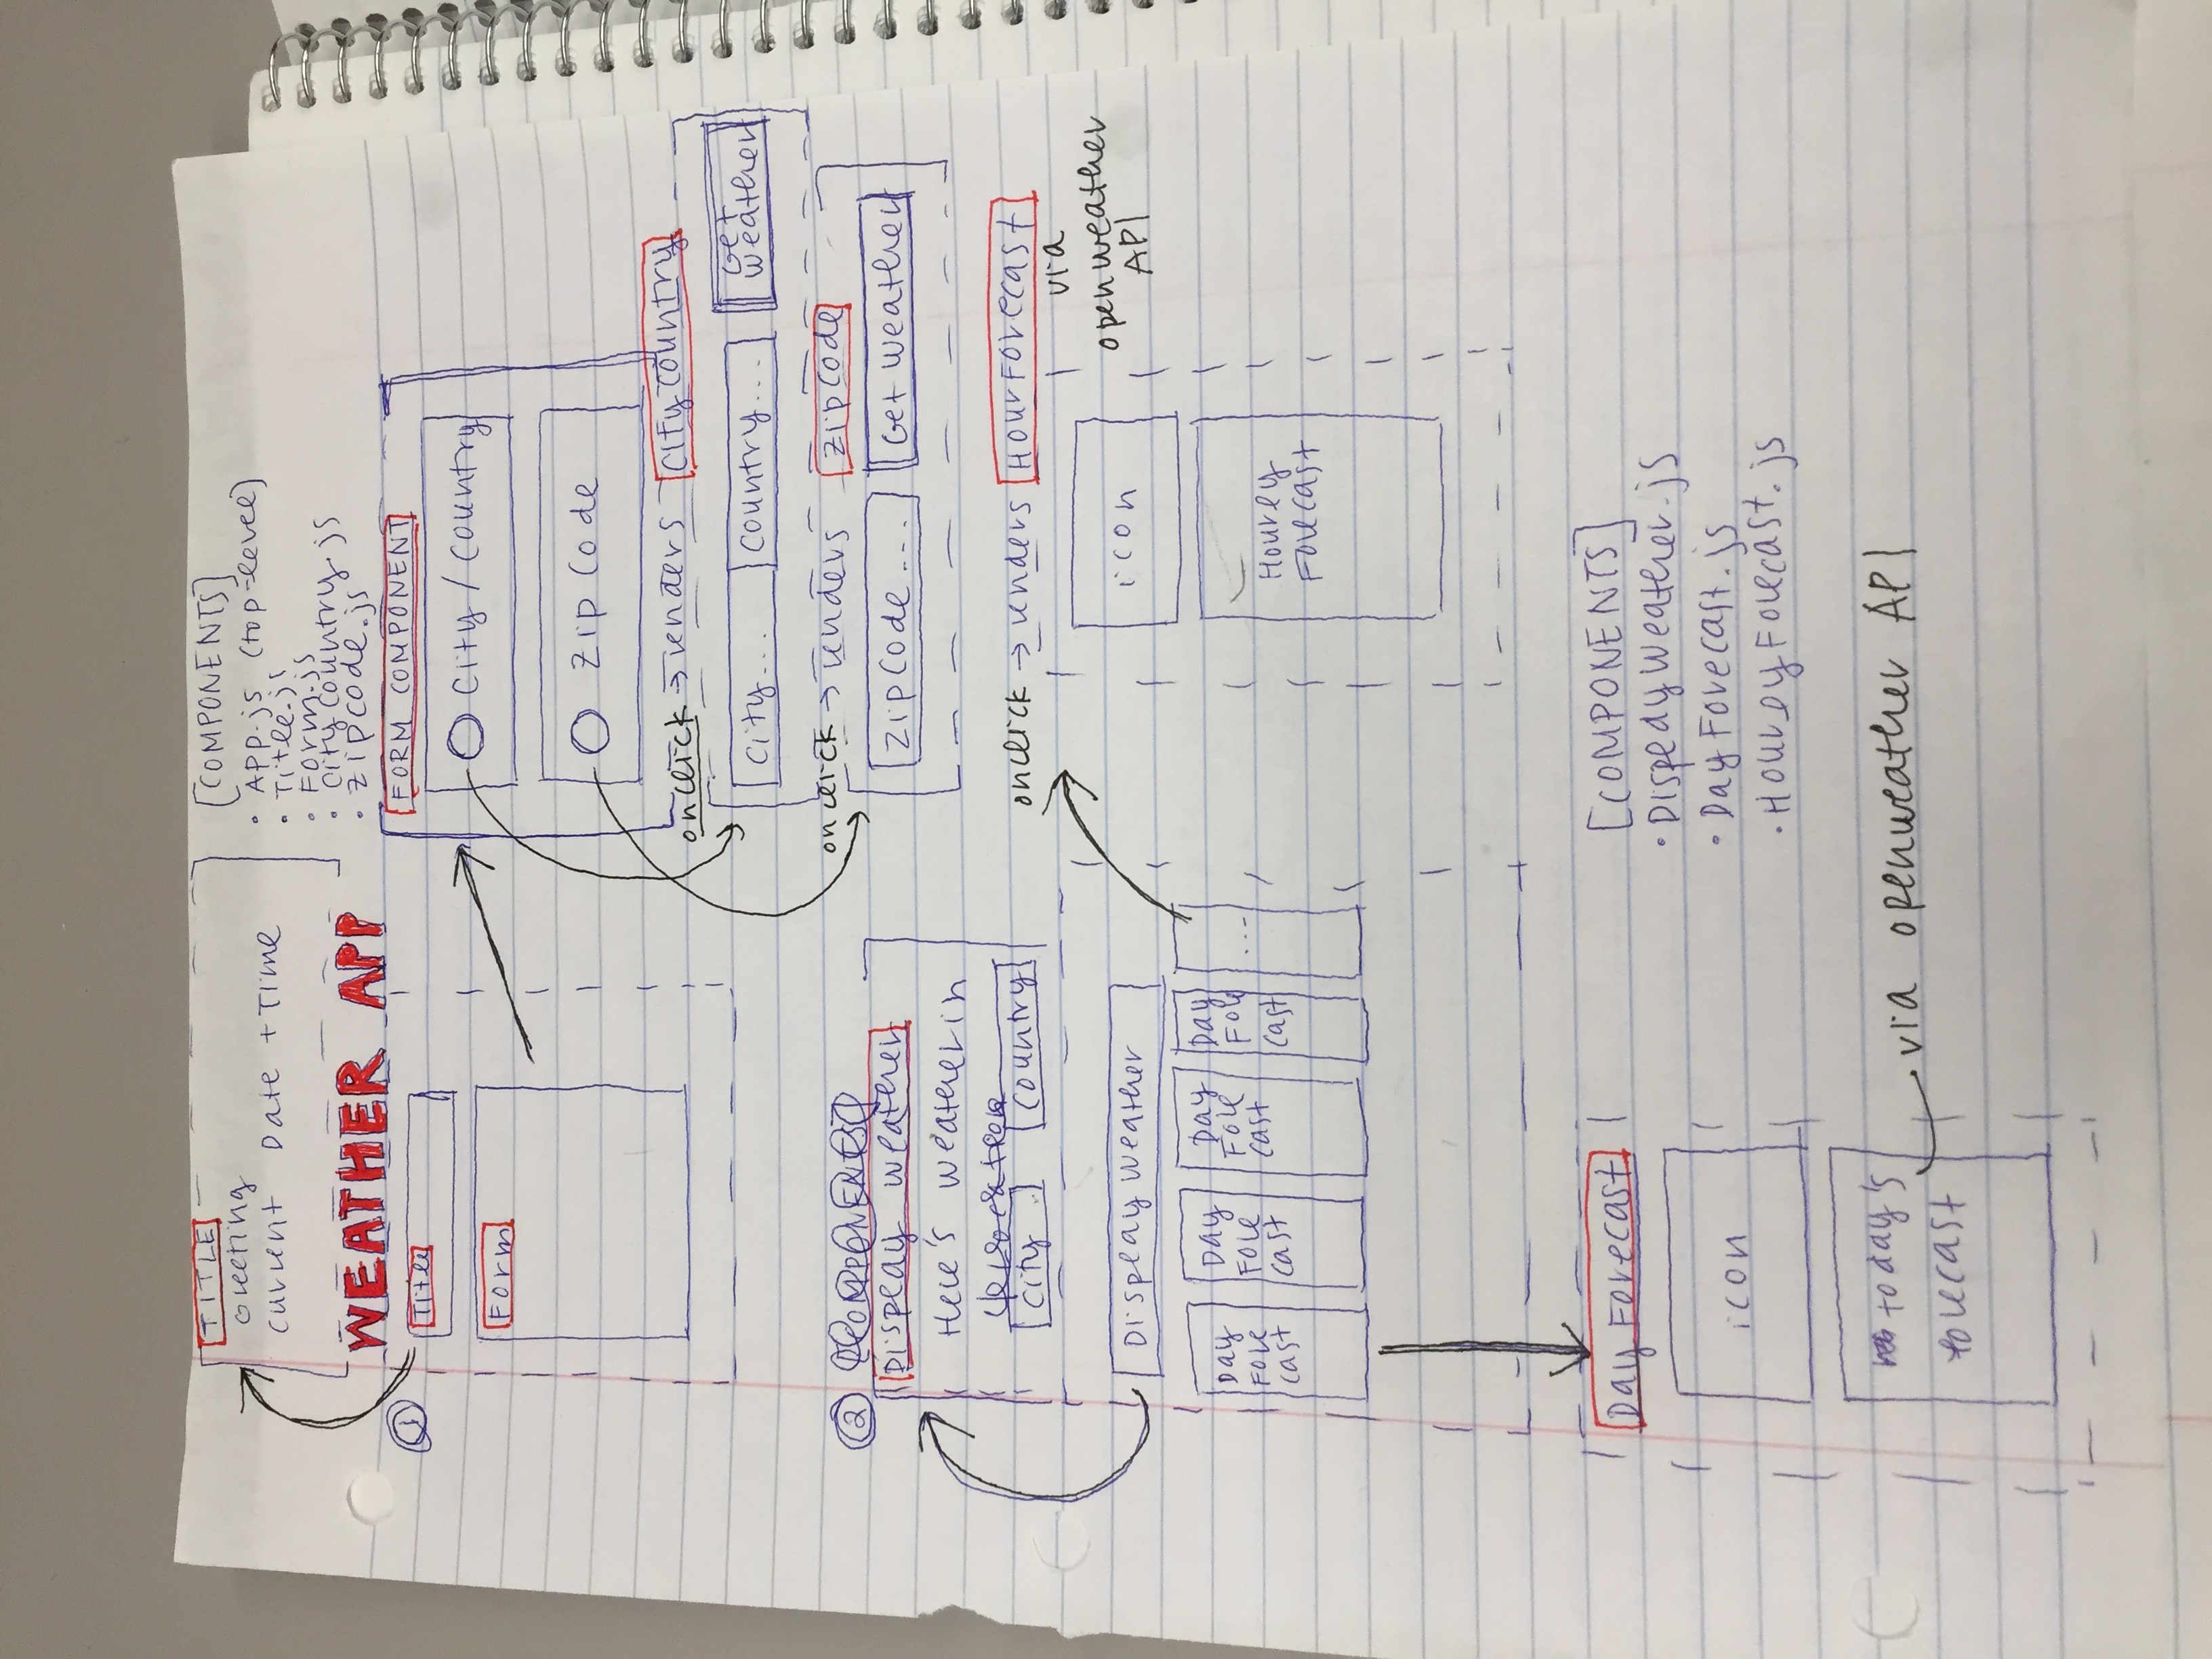 TITLE
Greeting
Current Date + Time
[COMPONENTS]
• App.js (top-level)
• Title.js
• Form.js
• CityCountry.js
• Zipcode.js
WEATHER APP
1
Title
Form
FORM COMPONENT
City / Country
Zip Code
onclick → renders City Country
City... Country... Get
weather
onclick → renders Zipcode
Zipcode ... Get weather
2 [COMPONENTS]
Display weather
Here's weather in
City . Country
Display weather
Day
Fore
cast
Day
Fore
cast
Day
Fore
cast
Day
Fore
cast
...
onclick → renders HourForecast
via
openweather
API
icon
Hourly
Forecast
Day Forecast
icon
today's
forecast
via openweather API
[COMPONENTS]
• DisplayWeather.js
• DayForecast.js
• HourlyForecast.js